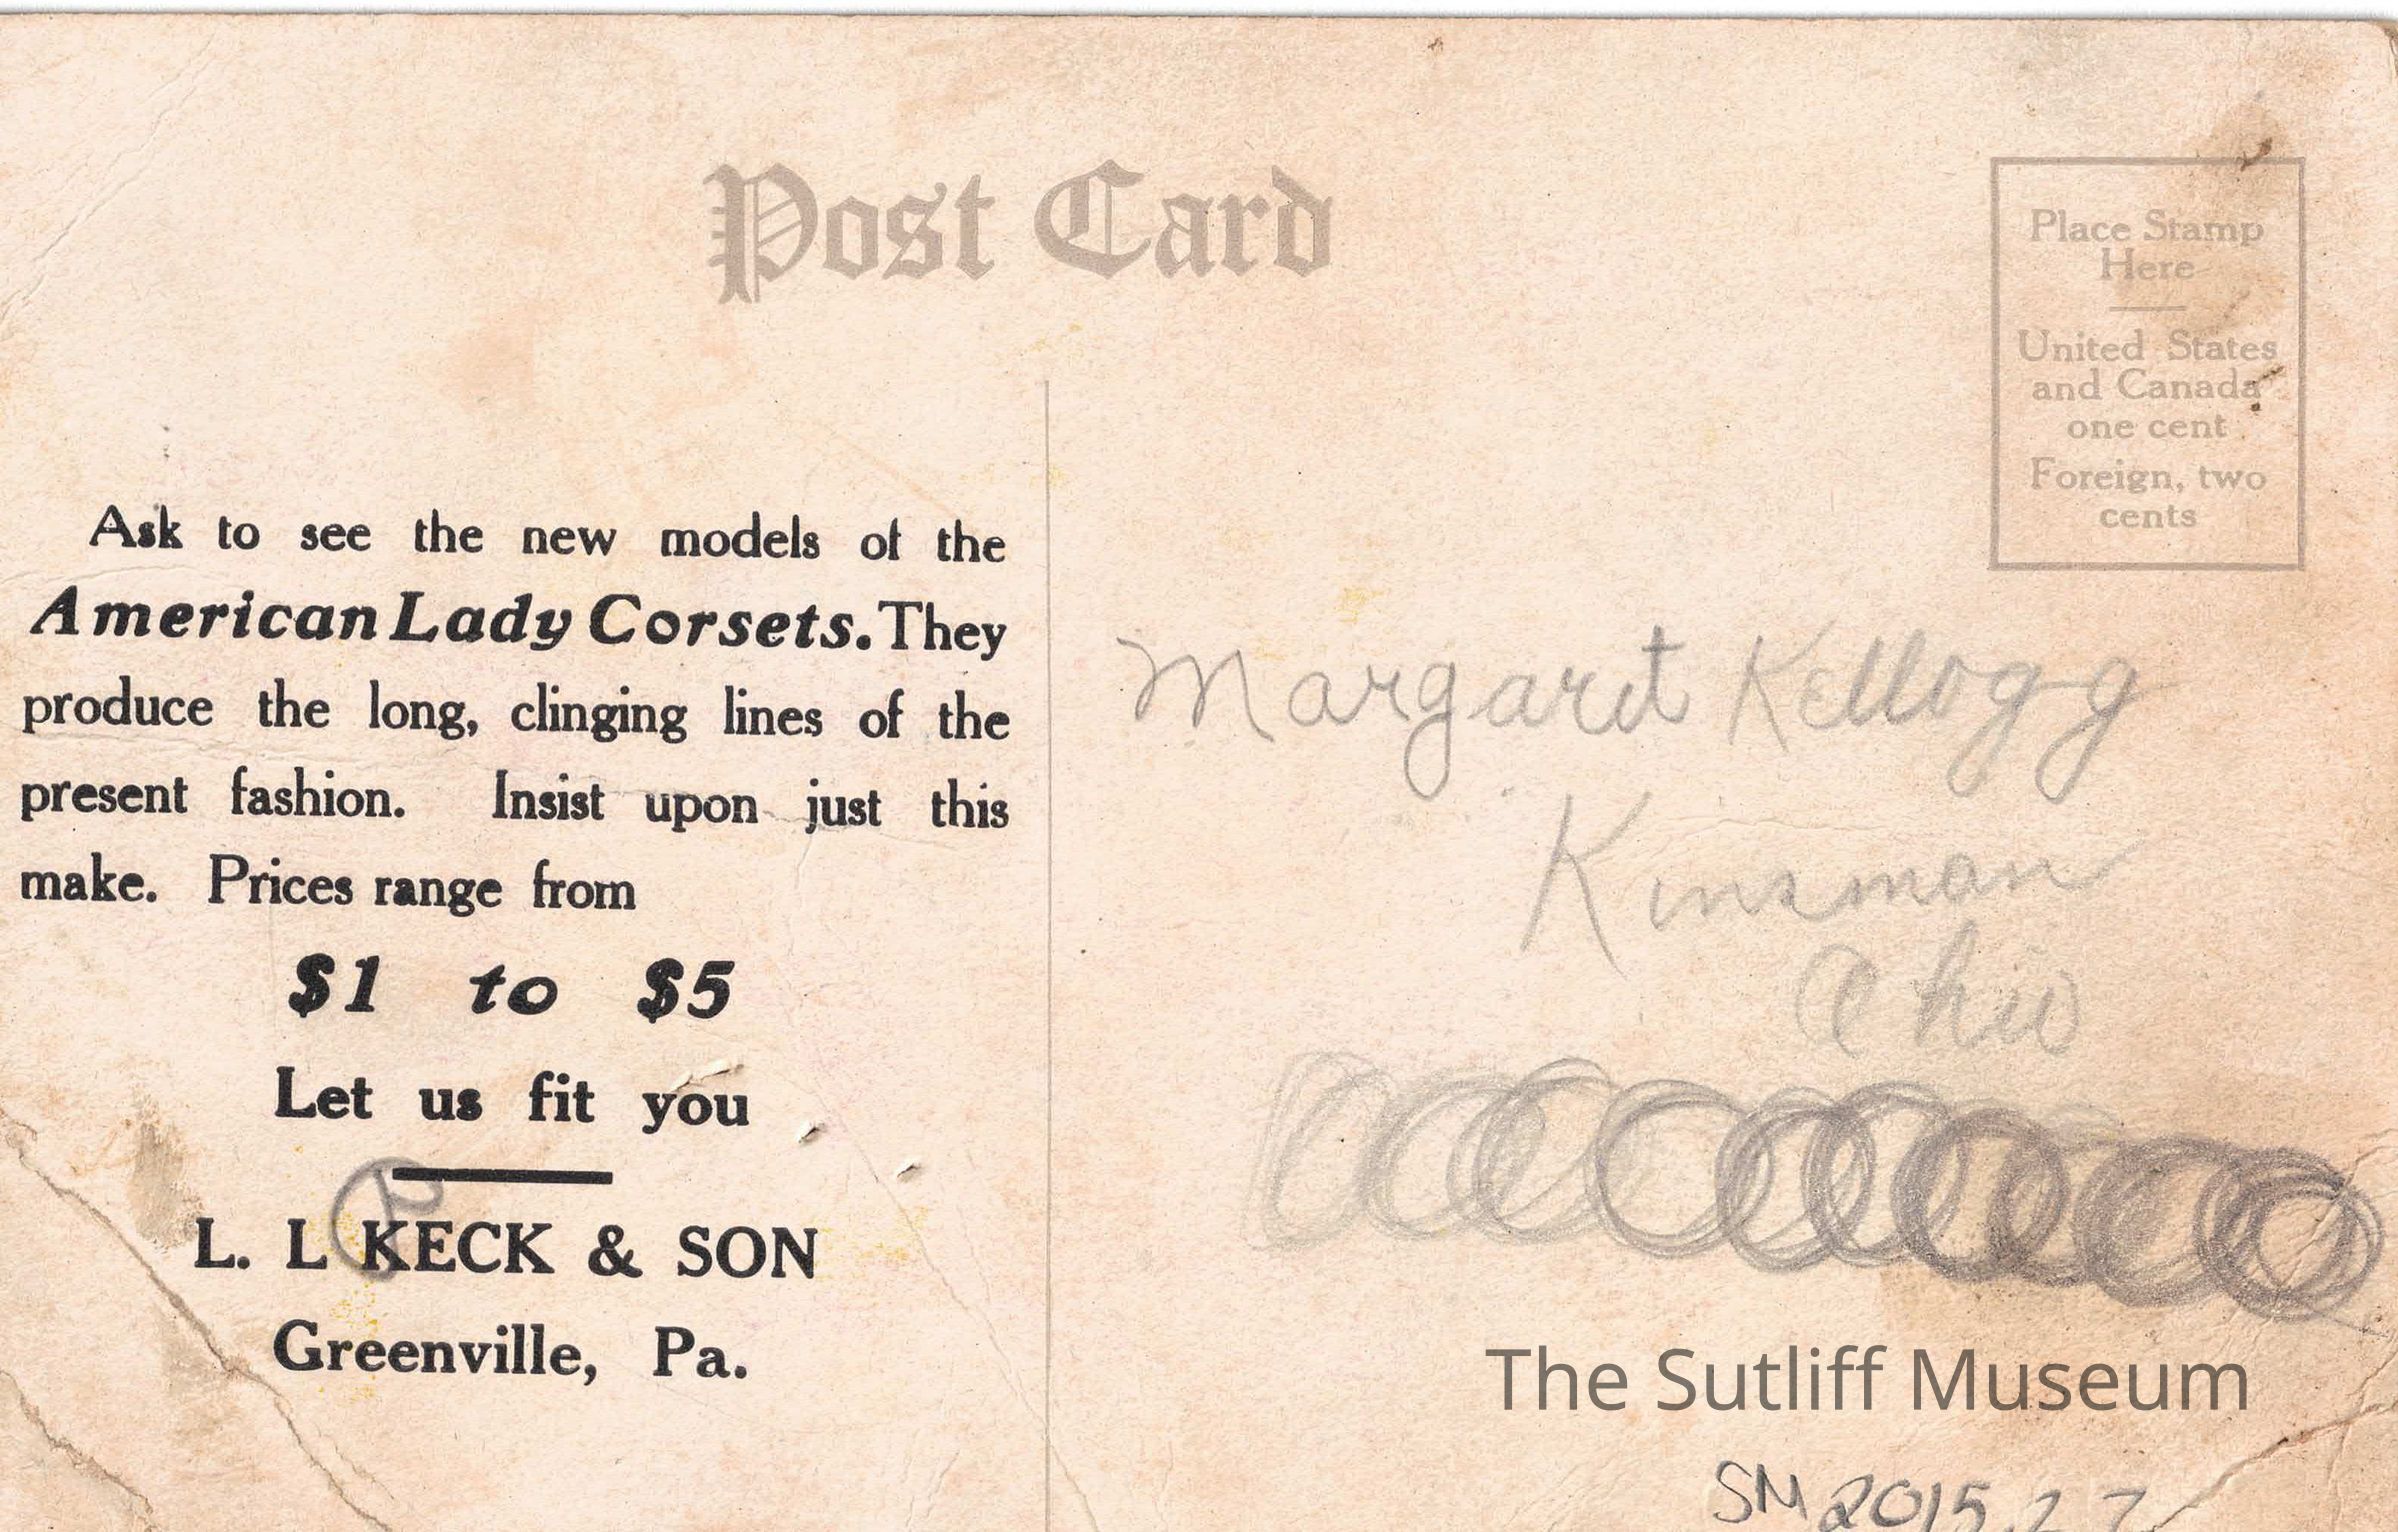 Post Card
Place Stamp
Here
United States
and Canada
one cent
Foreign, two
cents
Ask to see the new models of the
American Lady Corsets. They
produce the long, clinging lines of the
present fashion. Insist upon just this
make. Prices range from
$1 to $5
Let us fit you
L. L KECK & SON
Greenville, Pa.
Margaret Kellogg
Kinsman
Ohio
The Sutliff Museum
SM 2015.